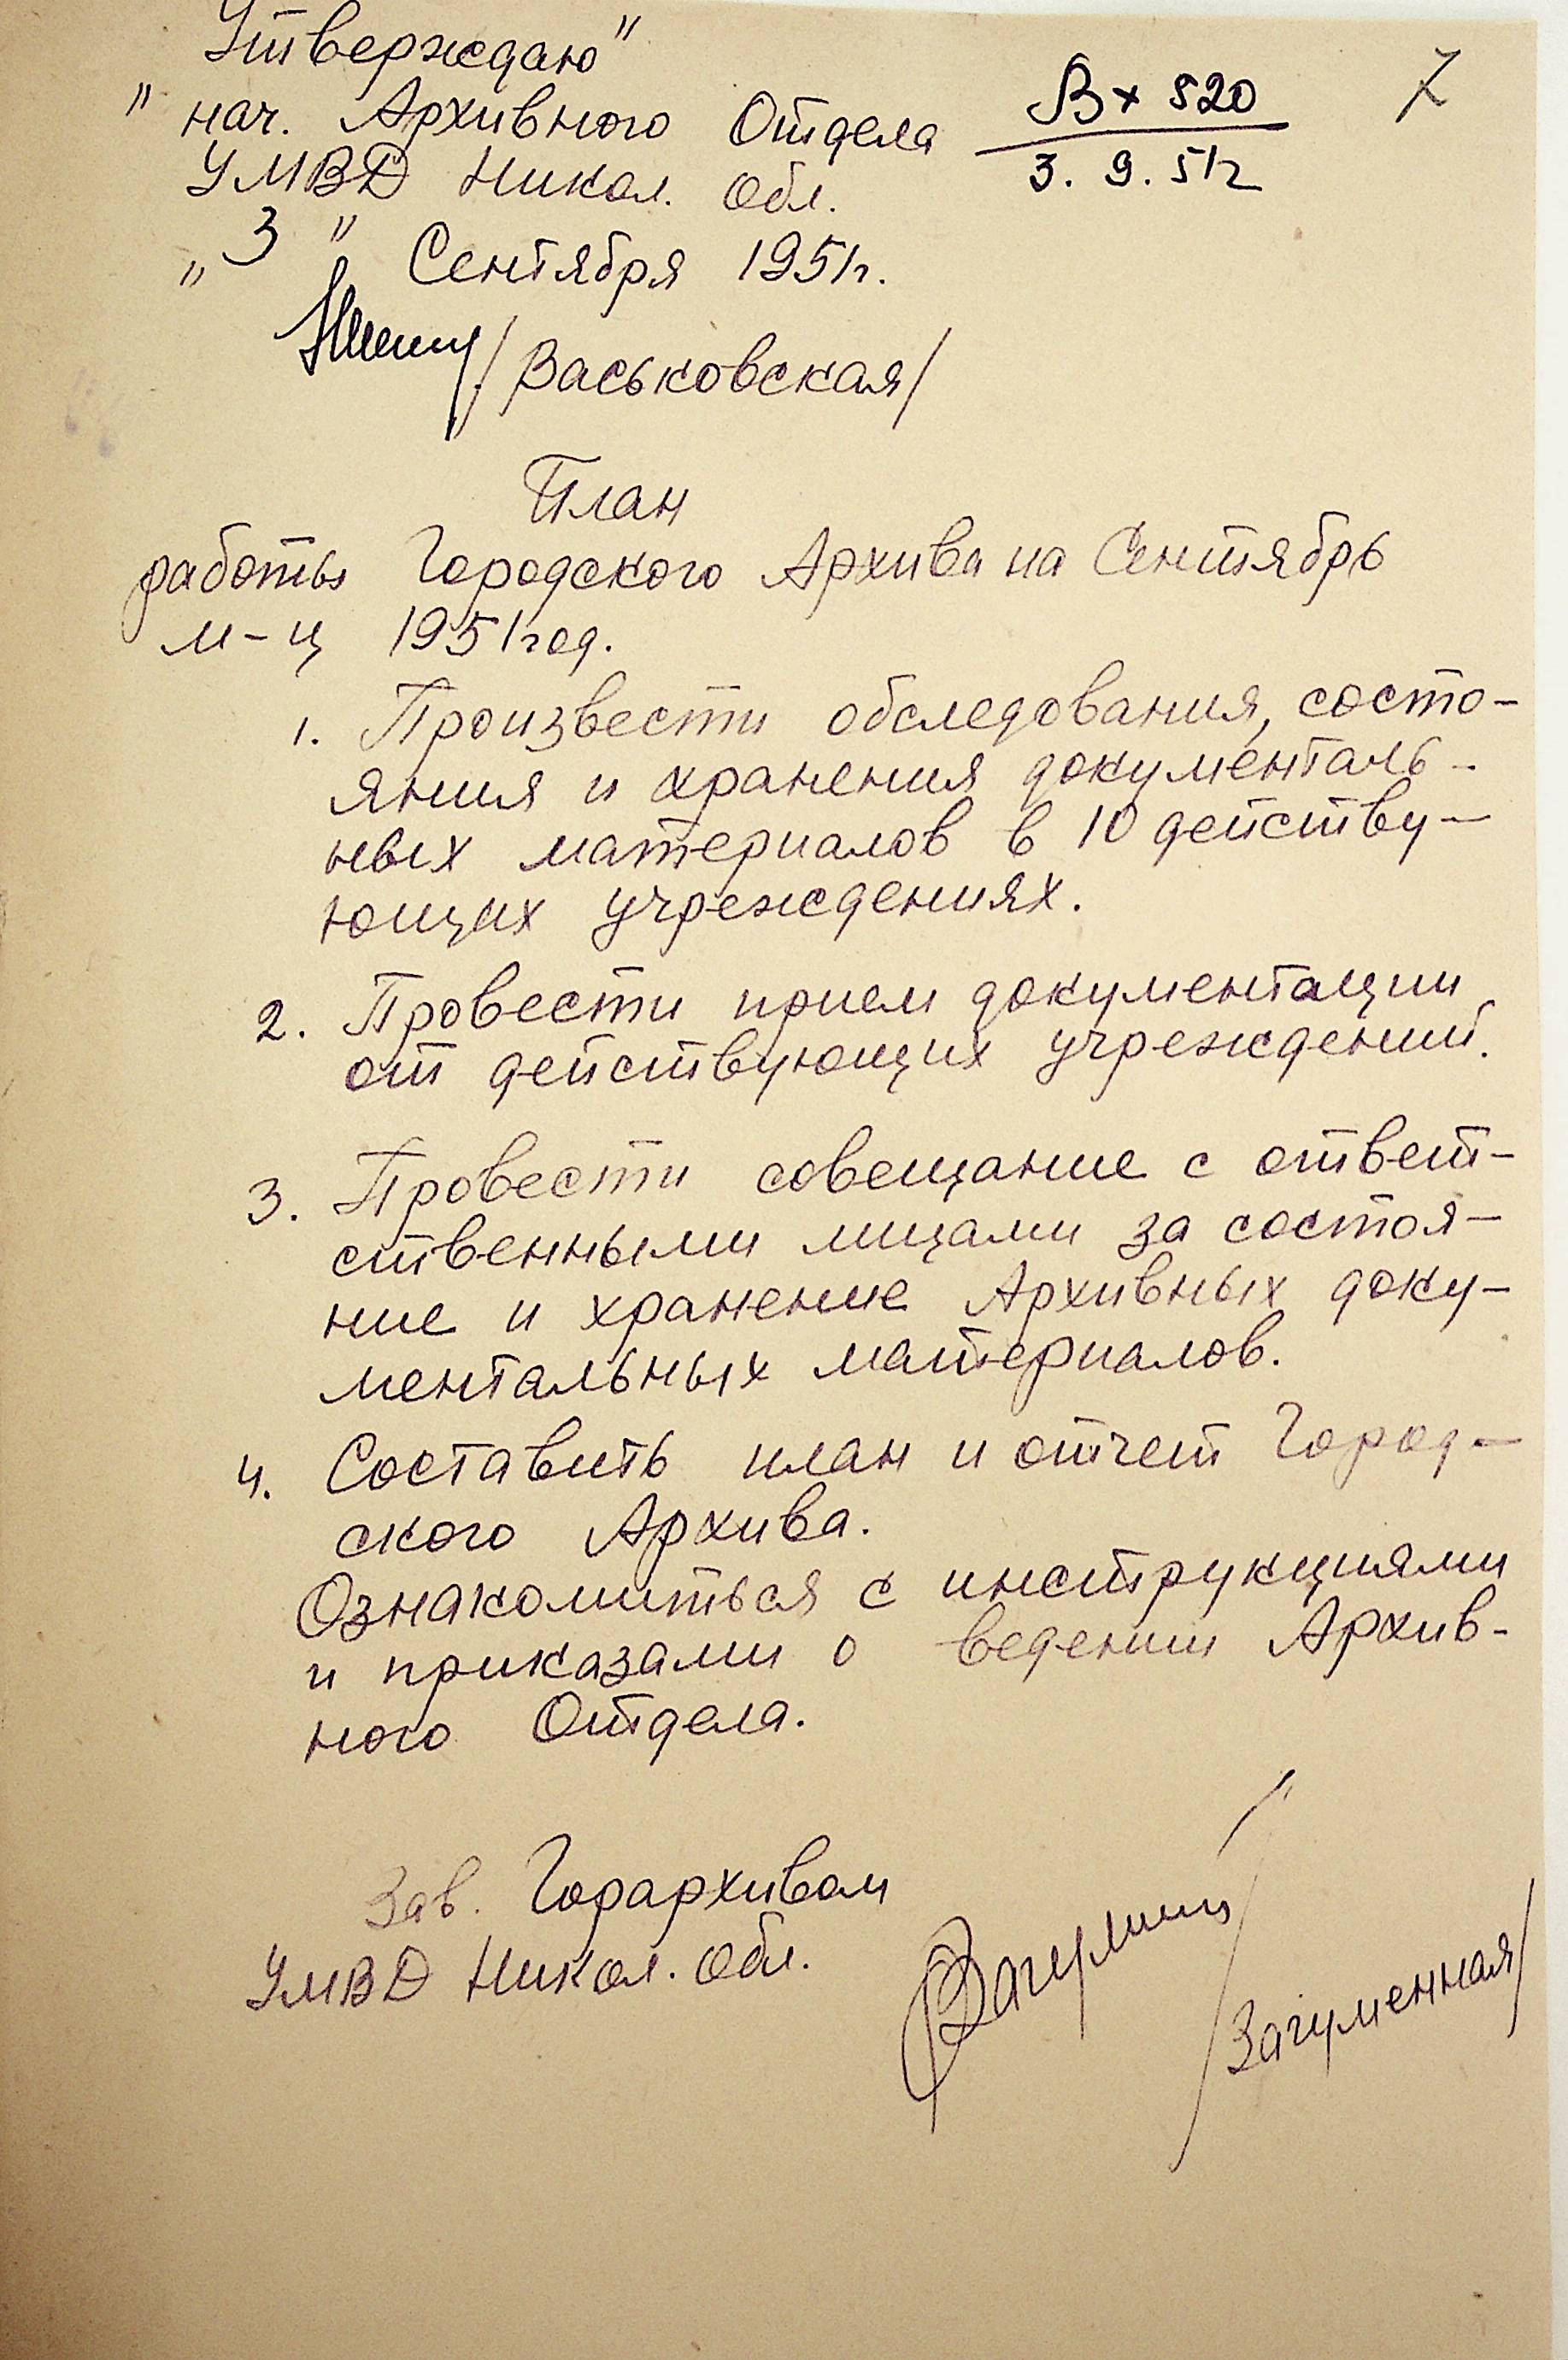 Утверждаю"
" нач. Архивного Отдела
УМВД Никол. Обл.
" 3 " Сентября 1951г.
/Васьковская/
Вх 520
3. 9. 51г
7
План
работы Городского Архива на Сентябрь
м-ц 1951год.
1. Произвести обследования, состо-
яния и хранения документаль-
ных материалов в 10 действу-
ющих учреждениях.
2. Провести прием документации
от действующих учреждений.
3. Провести совещание с ответ-
ственными лицами за состоя-
ние и хранение Архивных доку-
ментальных материалов.
4. Составить план и отчет Город-
ского Архива.
Ознакомиться с инструкциями
и приказами о ведении Архив-
ного Отдела.
Зав. Горархивом
УМВД Никол. Обл.
/Загуменная/